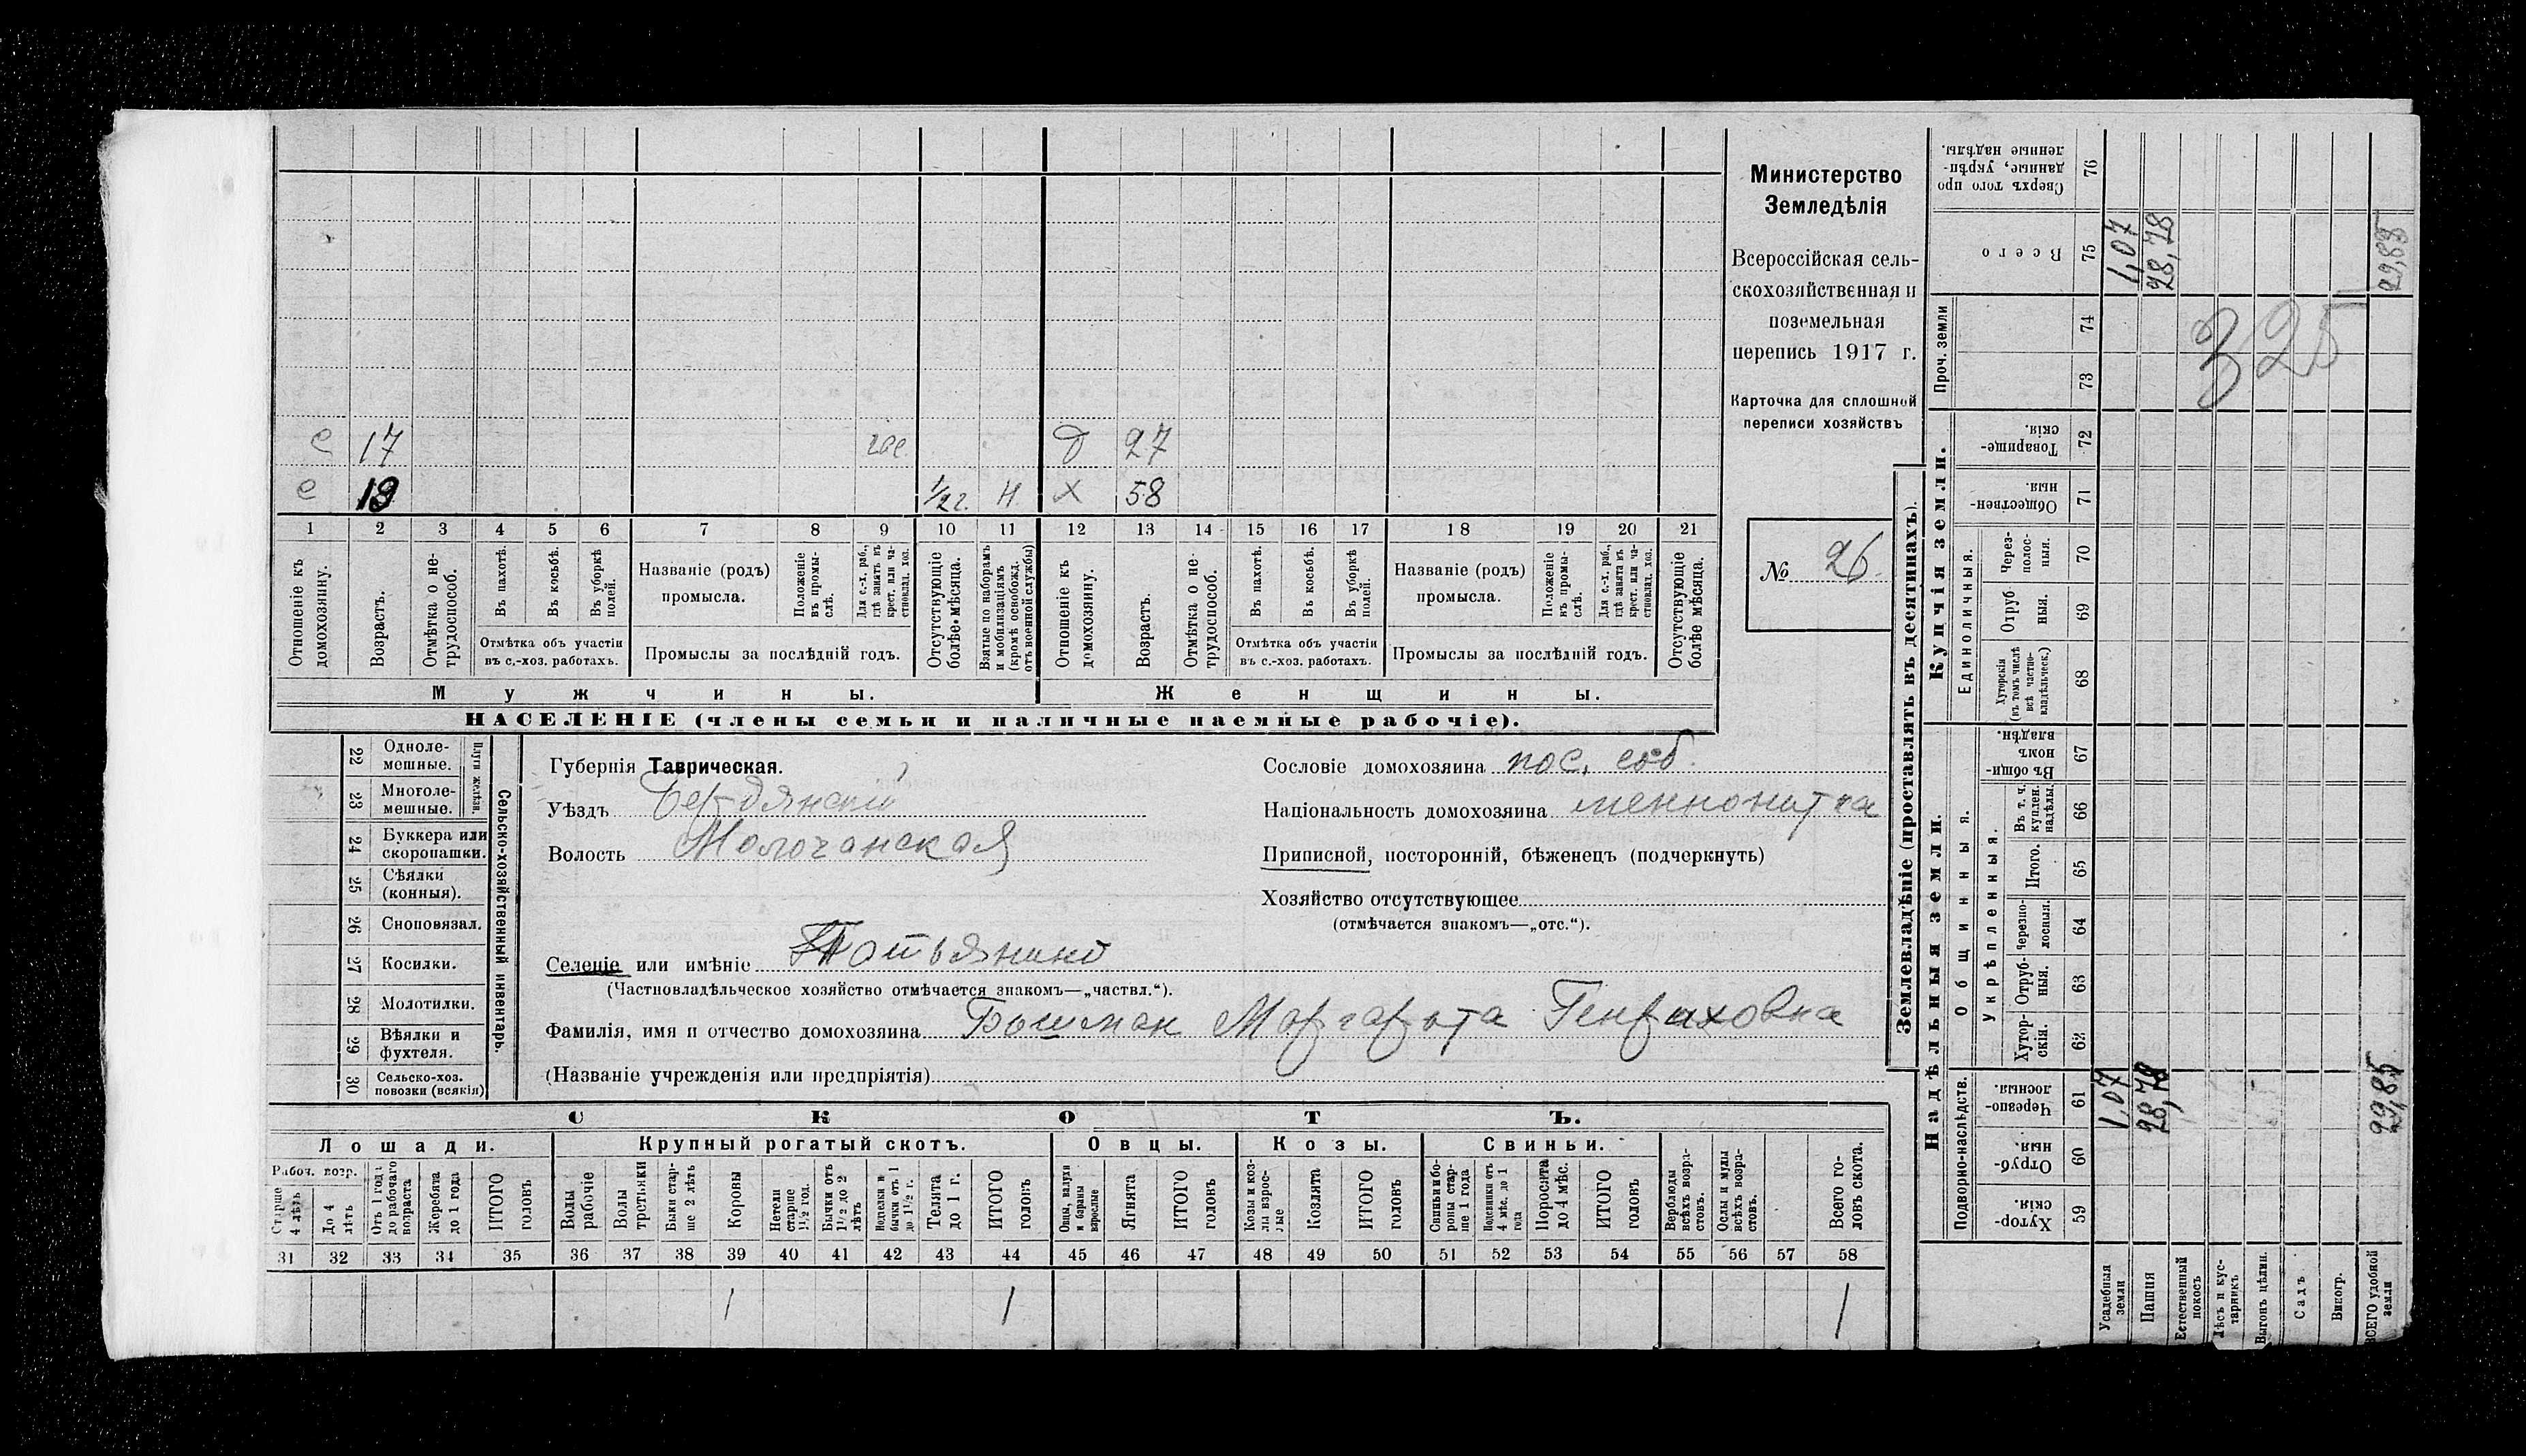 с 17 д 27
с 19 1/2 г. Н Х 58
1 2 3 4 5 6 7 8 9 10 11 12 13 14 15 16 17 18 19 20 21
Отношеніе къ домохозяину.
Возрастъ.
Отмѣтка о не-трудоспособ.
Въ пахотѣ.
Въ косьбѣ.
Въ уборкѣ полей.
Отмѣтка объ участіи
въ с.-хоз. работахъ.
Названіе (родъ)
промысла.
Положеніе въ промы-слѣ.
Для с.-х. раб., гдѣ занятъ въ крест. или ча-стновлад. хоз.
Промыслы за послѣдній годъ.
Отсутствующіе болѣе мѣсяца.
Взятые по наборамъ и мобилизаціямъ (кромѣ освобожд. отъ военной службы)
Отношеніе къ домохозяину.
Возрастъ.
Отмѣтка о не-трудоспособ.
Въ пахотѣ.
Въ косьбѣ.
Въ уборкѣ полей.
Отмѣтка объ участіи
въ с.-хоз. работахъ.
Названіе (родъ)
промысла.
Положеніе въ промы-слѣ.
Для с.-х. раб., гдѣ занята въ крест. или ча-стновлад. хоз.
Промыслы за послѣдній годъ.
Отсутствующіе болѣе мѣсяца.
Мужчины. Женщины.
НАСЕЛЕНІЕ (члены семьи и наличные наемные рабочіе).
Министерство
Земледѣлія
Всероссійская сель-
скохозяйственная и
поземельная
перепись 1917 г.
Карточка для сплошной
переписи хозяйствъ
№ 26
22 Одноле-мешные.
23 Многоле-мешные.
Плуги желѣзн.
24 Буккера или скоропашки.
25 Сѣялки (конныя).
26 Сноповязал.
27 Косилки.
28 Молотилки.
29 Вѣялки и фухтеля.
30 Сельско-хоз. повозки (всякія)
Сельско-хозяйственный инвентарь.
Губернія Таврическая.
Уѣздъ Бердянский
Волость Молочанская
Селеніе или имѣніе Татьянино
(Частновладѣльческое хозяйство отмѣчается знакомъ—„частвл.“).
Фамилія, имя и отчество домохозяина Бошман Маргарита Генриховна
(Названіе учрежденія или предпріятія)
Сословіе домохозяина пос. соб.
Національность домохозяина меннонитка
Приписной, посторонній, бѣженецъ (подчеркнуть)
Хозяйство отсутствующее
(отмѣчается знакомъ—„отс.“).
СКОТЪ.
Лошади. Крупный рогатый скотъ. Овцы. Козы. Свиньи.
Рабоч. возр.
Старше 4 лѣтъ
До 4 лѣтъ
Отъ 1 года до рабочаго возраста
Жеребята до 1 года
ИТОГО головъ
Волы рабочіе
Волы третьяки
Быки стар-ше 2 лѣтъ
Коровы
Нетели старше 1 1/2 год.
Бычки отъ 1 1/2 до 2 лѣтъ
Подтелки и бычки отъ 1 до 1 1/2 г.
Телята до 1 г.
ИТОГО головъ
Овцы, валухи и бараны взрослые
Ягнята
ИТОГО головъ
Козы и коз-лы взрос-лые
Козлята
ИТОГО головъ
Свиньи и бо-ровы стар-ше 1 года
Подсвинки отъ 4 мѣс. до 1 года
Поросята до 4 мѣс.
ИТОГО головъ
Верблюды всѣхъ возра-стовъ.
Ослы и мулы всѣхъ возра-стовъ.
Всего го-ловъ скота.
31 32 33 34 35 36 37 38 39 40 41 42 43 44 45 46 47 48 49 50 51 52 53 54 55 56 57 58
1 1 1
Землевладѣніе (проставлять въ десятинахъ).
Надѣльныя земли. Купчія земли.
Подворно-наслѣдств.
Общинныя.
Укрѣпленныя.
Единоличныя.
Проч. земли
Сверхъ того про данные, укрѣп-ленные надѣлы. 76
Всего 75 1,07 28,78 29,85
74
73
325
Товарище-скія. 72
Обществен-ныя. 71
Через-полос-ныя. 70
Отруб ныя. 69
Хуторскія (въ томъ числѣ всѣ частно-владѣльческ.) 68
Въ общи-номъ владѣн. 67
Въ т. ч. куплен. надѣлы. 66
Итого. 65
Черезпо-лосныя. 64
Отруб-ныя. 63
Хутор-скія. 62
Черезпо-лосныя. 61 1,07 28,78 29,85
Отруб-ныя. 60
Хутор-скія. 59
Усадебныя земли
Пашня
Естественный покосъ
Лѣсъ и кус-тарникъ
Выгонъ цѣлин.
Садъ
Виногр.
ВСЕГО удобной земли